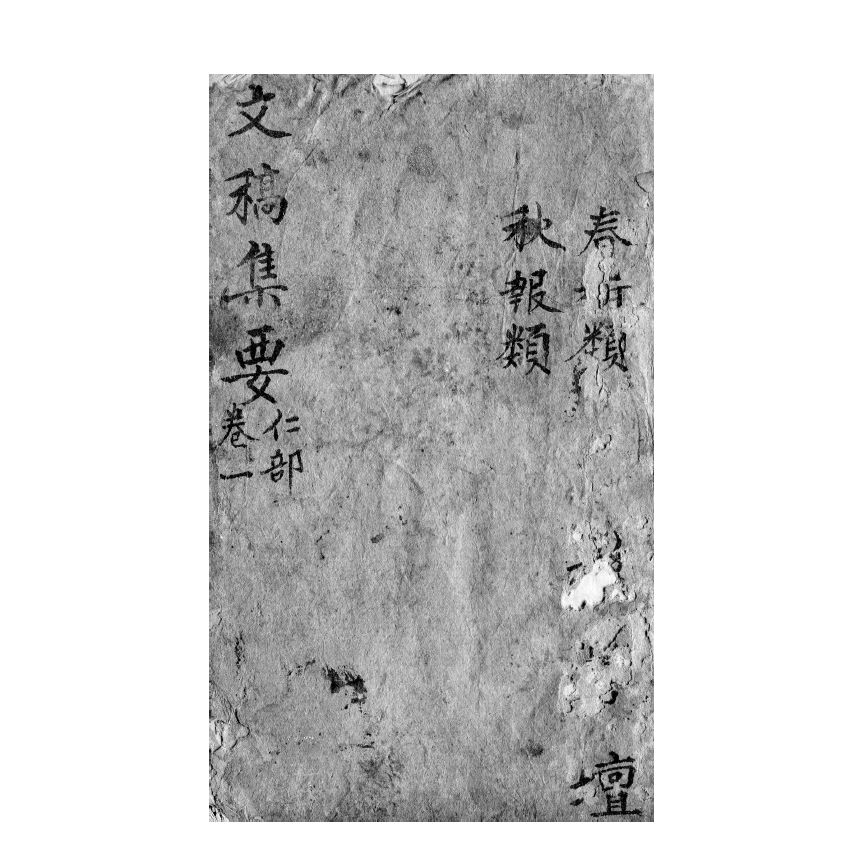 春祈類
壇
秋報類
文稿集要
仁部
卷一